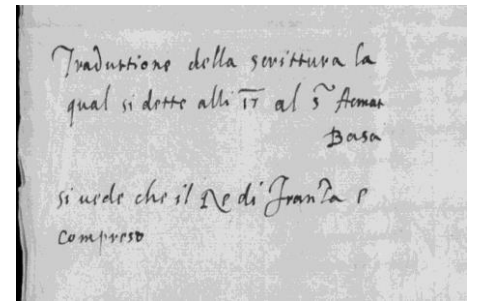 Traduttione della scrittura la
qual si dette alli 17 al S. Acmat
Basa
si uede che il Re di Franza e
compreso